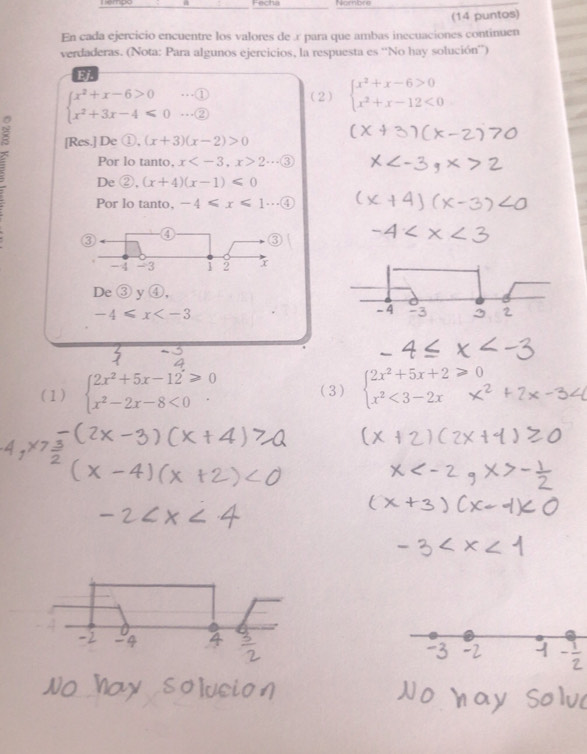 Tiempo a Fecha Nombre
(14 puntos)
En cada ejercicio encuentre los valores de x para que ambas inecuaciones continuen
verdaderas. (Nota: Para algunos ejercicios, la respuesta es “No hay solución”)
Ej.
x² + x − 6 > 0 ⋯①
x² + 3x − 4 ⩽ 0 ⋯②
[Res.] De ①, (x+3)(x−2) > 0
Por lo tanto, x < −3, x > 2⋯③
De ②, (x+4)(x−1) ⩽ 0
Por lo tanto, −4 ⩽ x ⩽ 1⋯④
③ ④ ③
−4 −3 1 2 x
De ③ y ④,
−4 ⩽ x < −3
(2) x² + x − 6 > 0
x² + x − 12 < 0
(x+3)(x−2)>0
x<-3, x>2
(x+4)(x-3)<0
-4<x<3
-4 -3 3 2
-4 ≤ x < -3
(1) 2x² + 5x − 12 ⩾ 0
x² − 2x − 8 < 0
-(2x-3)(x+4)≥0
-4, x>3/2
(x-4)(x+2)<0
-2<x<4
-2 -4 4 3/2
No hay solucion
(3) 2x² + 5x + 2 ⩾ 0
x² < 3 − 2x x² + 2x -3<
(x+2)(2x+1)≥0
x<-2, x>-1/2
(x+3)(x-1)<0
-3<x<1
-3 -2 -1 -1/2
No hay soluc
© 2002 Kumon